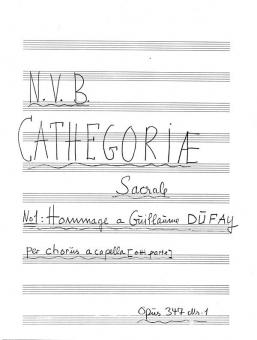 N.V.B.
CATHEGORIÆ
Sacrale
No1: Hommage a Guillaume DŪFAY
per chorus a capella [otti parte]
Opus 347 No. 1